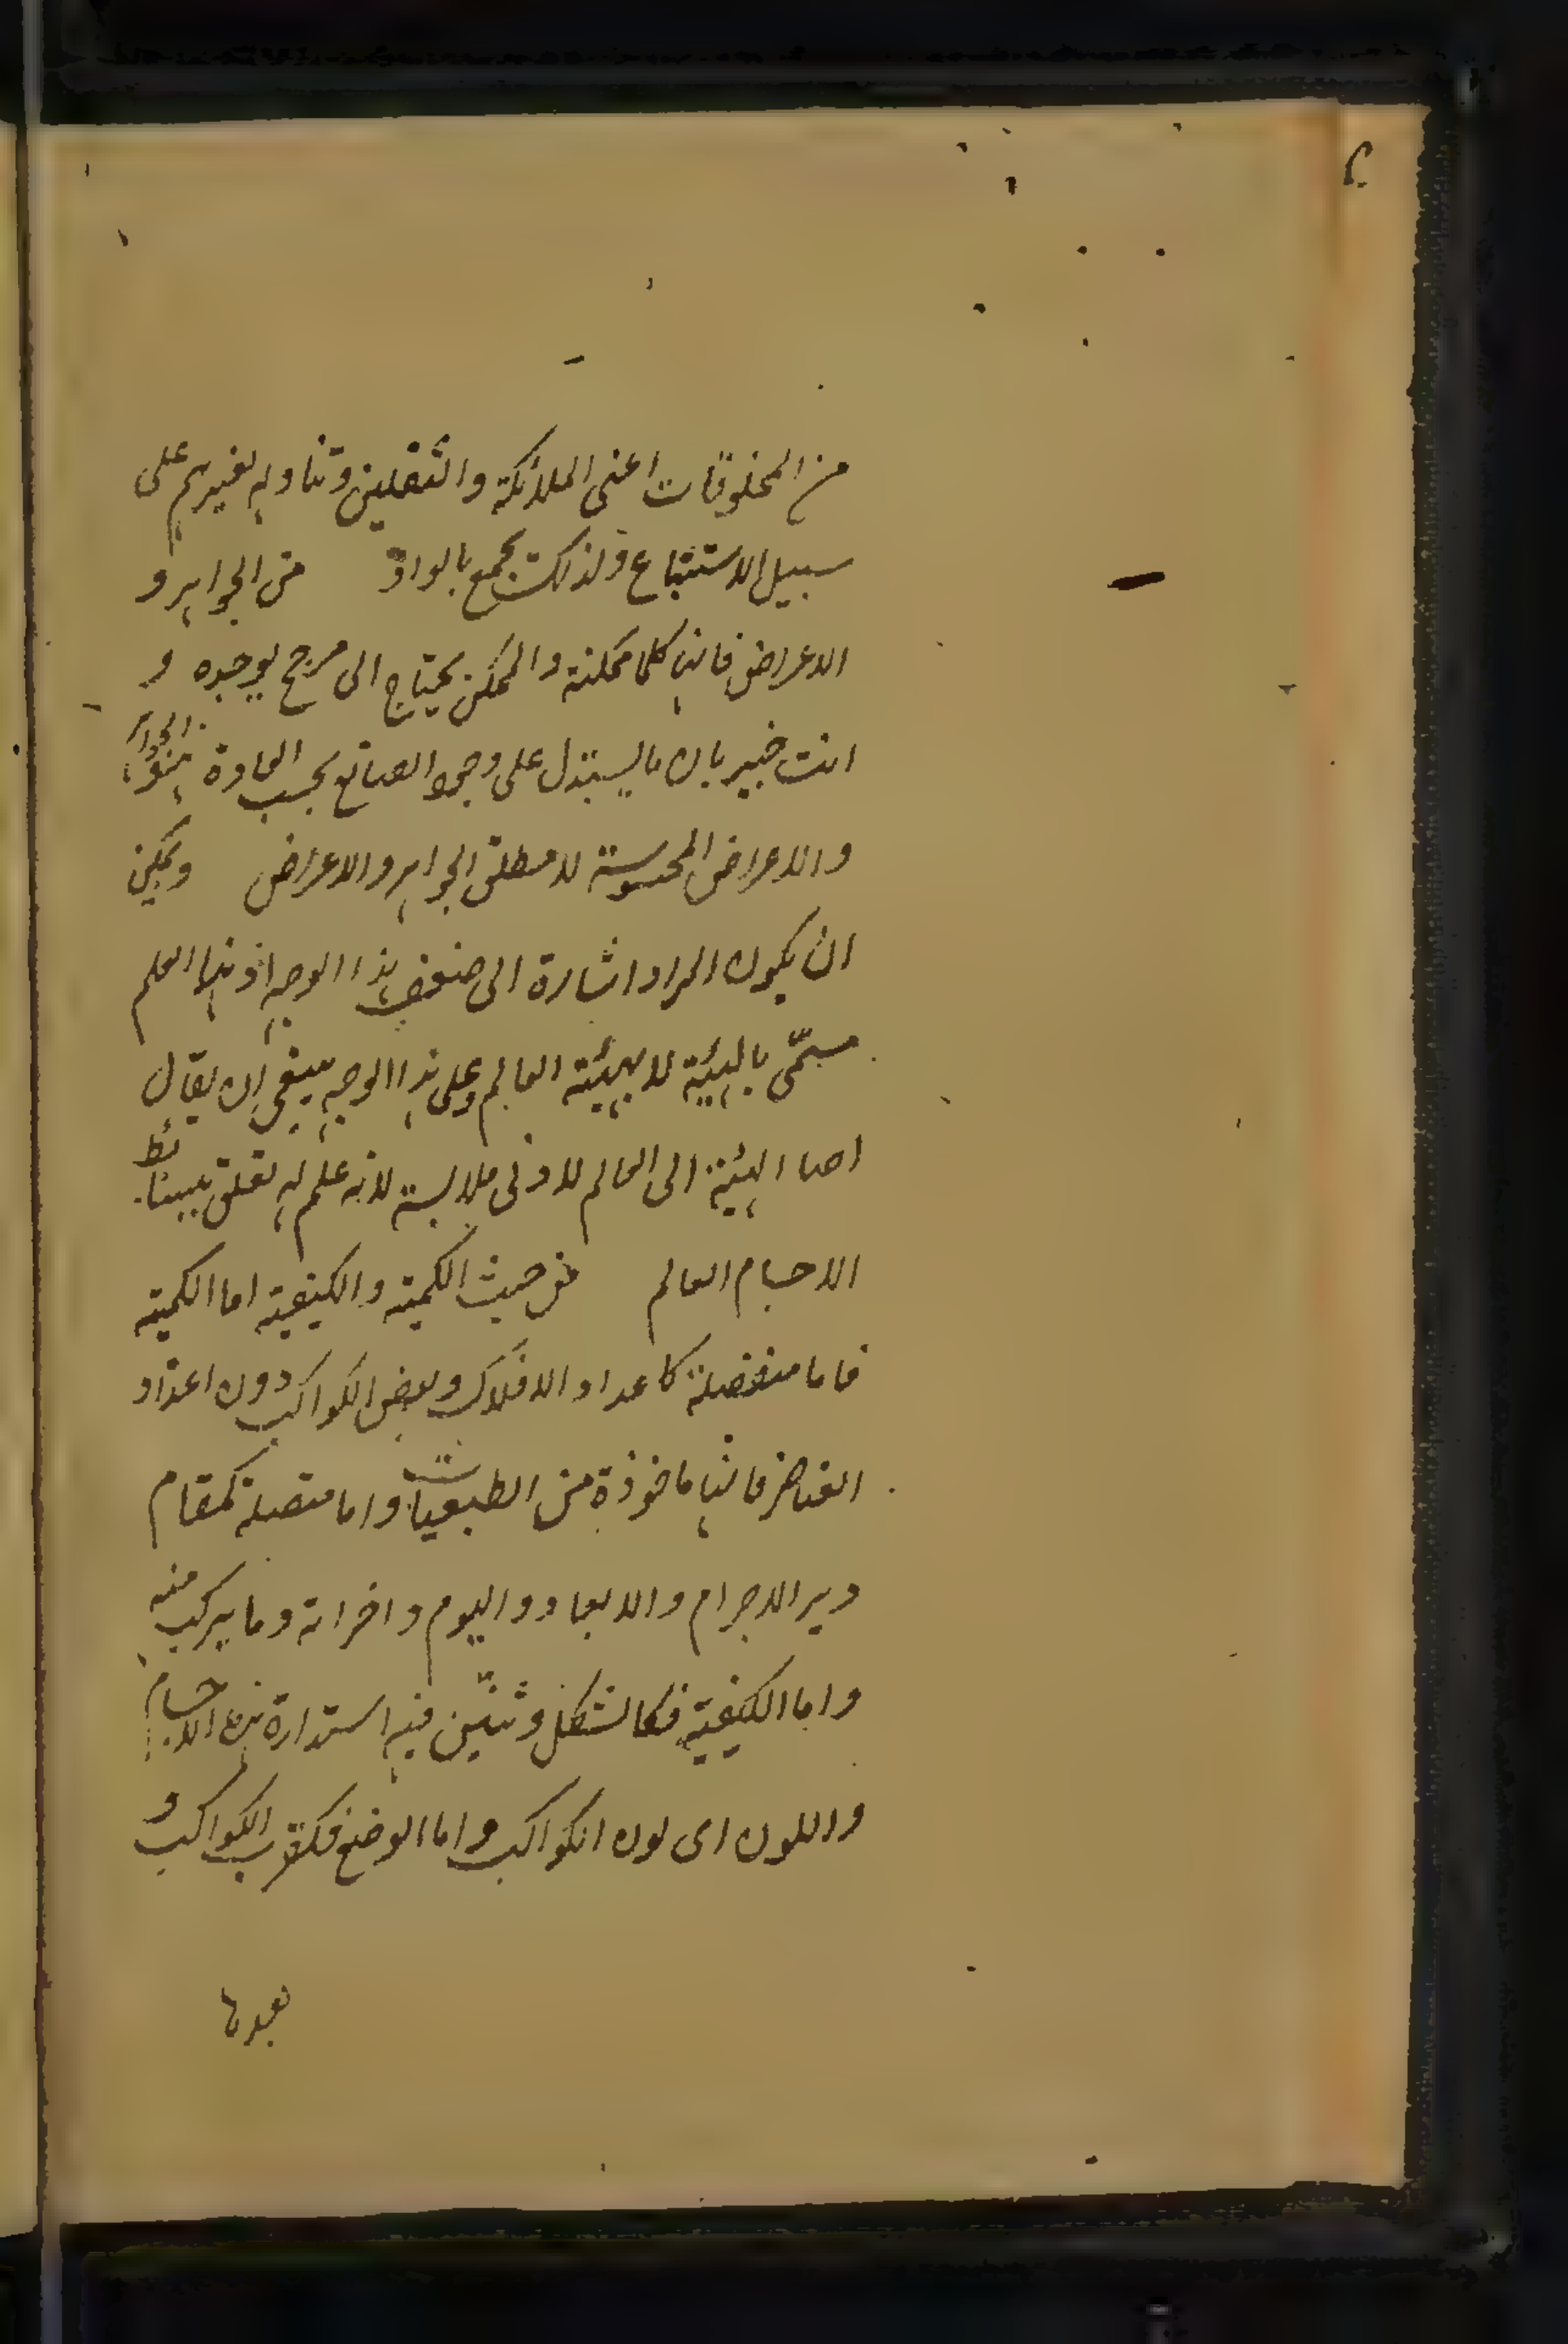 من المخلوقات اعنى الملائكة والثقلين وتناوله لغيرهم على
سبيل الاستتباع ولذلك يجمع بالواو من الجواهر و
الاعراض فانها كلها ممكنة والممكن يحتاج الى مرجح يوجده و
انت خبير بان ما يستدل على وجود الصانع بحسب العادة هو الجواهر
والاعراض المحسوسة لا مطلق الجواهر والاعراض ويمكن
ان يكون المراد اشارة الى ضعف هذا الوجه اذ هذا العلم
مسمّى بالهيئة لا بهيئة العالم وعلى هذا الوجه ينبغى ان يقال
اضا الهيئة الى العالم لادنى ملابسة لانه علم له تعلق ببسائط
الاجسام العالم من حيث الكمية والكيفية اما الكمية
فاما منفصلة كاعداد الافلاك وبعض الكواكب دون اعداد
العناصر فانها ماخوذة من الطبعيات واما متصلة كمقام
دير الاجرام والابعاد واليوم واخراته وما يتركب منه
واما الكيفية فكالشكل وتبيّن فيه استدارة هذه الاجسام
واللون اى لون الكواكب واما الوضع فكقرب الكواكب و
بعدها